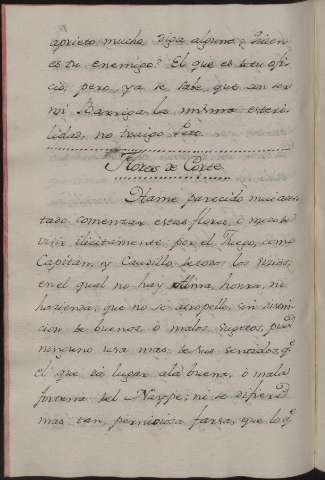 aprieto mucho diga alguno, Quien
es tu enemigo? El que es de tu ofi
cio, pero, ya se sabe, que en ser
mi Barriga la misma esteri
lidad, no traigo Feto
Flores de Corte.
Hame parecido mui acer
tado comenzar estas flores, ò modo de
vivir ilicitamente, por el Juego, como
Capitan, y Caudillo de todos los vicios,
en el qual no hay Alma, honra, ni
hazienda, que no se atropelle, sin distin
cion de buenos, ò malos sugetos, pues
ninguno usa mas de sus sentidos, q.^e
el que dà lugar ala buena, ò mala
fortuna del Naype; ni se difiere
mas tan perniciosa farsa, que los q.^e